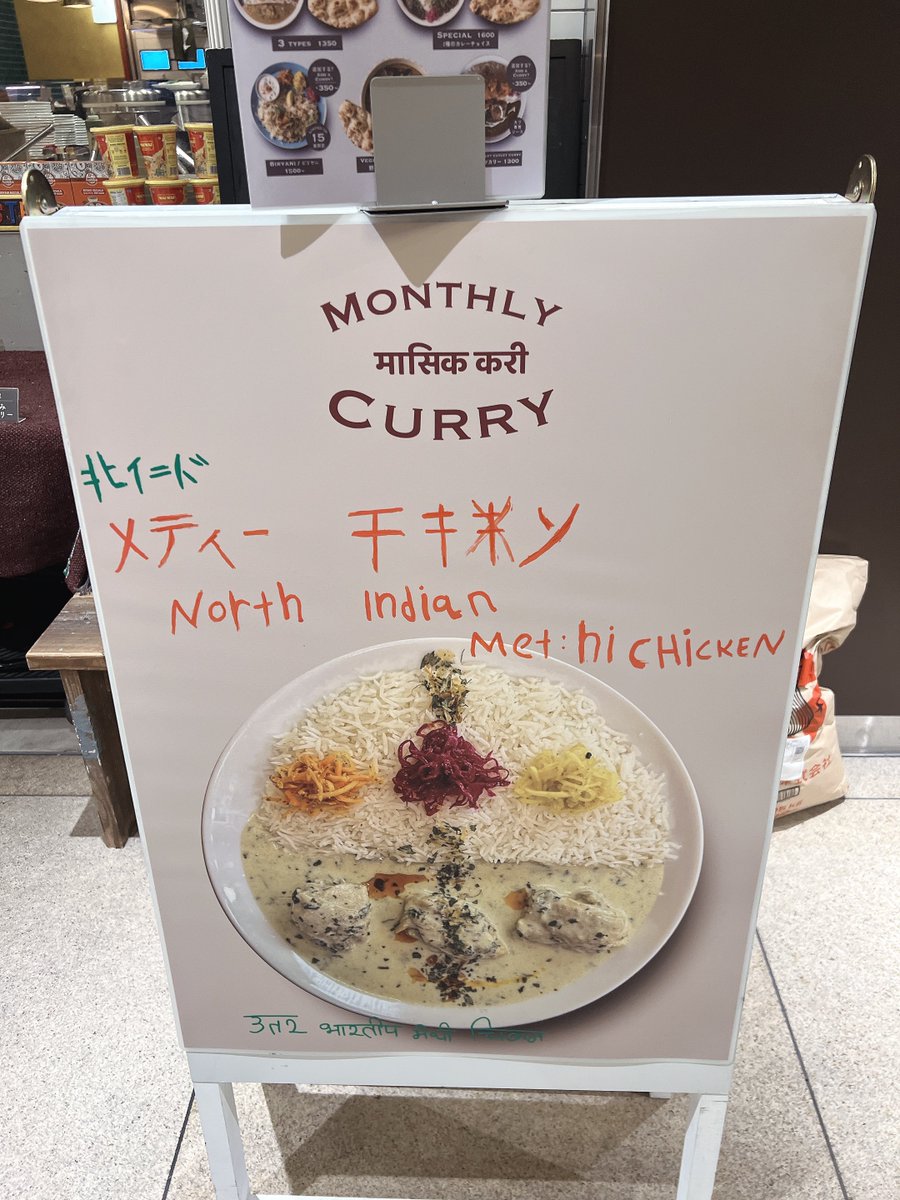 3 TYPES 1350
SPECIAL 1600
2種のカレーチョイス
ADD A CURRY?
+350~
CURRY?
+350~
15
BIRYANI / ビリヤニ
1500~
カリー 1300
MONTHLY
मासिक करी
CURRY
北インド
メティー チキン
North Indian
Met:hi CHICKEN
उत्तर भारतीय मेथी चिकन